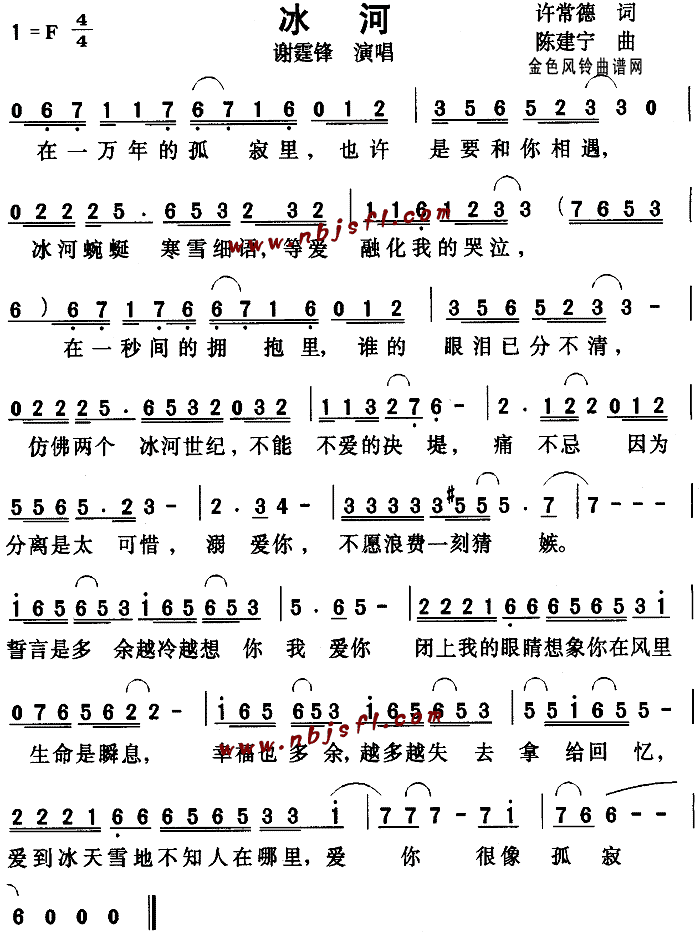 1=F 4/4 冰 河 许常德 词
谢霆锋 演唱 陈建宁 曲
金色风铃曲谱网
0 6 7 1 1 7 6 7 1 6 0 1 2 | 3 5 6 5 2 3 3 0 |
在一万年的孤 寂里，也许 是要和你相遇，
0 2 2 2 2 5. 6 5 3 2 3 2 | 1 1 6 1 2 3 3 ( 7 6 5 3 |
冰河蜿蜒 寒雪细语，等爱 融化我的哭泣，
www.nbjsfl.com
6 ) 6 7 1 7 6 6 7 1 6 0 1 2 | 3 5 6 5 2 3 3 - |
在一秒间的拥 抱里，谁的 眼泪已分不清，
0 2 2 2 2 5. 6 5 3 2 0 3 2 | 1 1 3 2 7 6 - | 2. 1 2 2 0 1 2 |
仿佛两个 冰河世纪，不能 不爱的决 堤，痛 不忌 因为
5 5 6 5. 2 3 - | 2. 3 4 - | 3 3 3 3 3 #5 5 5. 7 | 7 - - - |
分离是太 可惜，溺 爱你，不愿浪费一刻猜 嫉。
i 6 5 6 5 3 i 6 5 6 5 3 | 5. 6 5 - | 2 2 2 1 6 6 6 5 6 5 3 i |
誓言是多 余越冷越想 你 我 爱你 闭上我的眼睛想象你在风里
0 7 6 5 6 2 2 - | i 6 5 6 5 3 i 6 5 6 5 3 | 5 5 i 6 5 5 - |
生命是瞬息， 幸福也多余，越多越失 去 拿 给回忆，
www.nbjsfl.com
2 2 2 1 6 6 6 5 6 5 3 3 i | 7 7 7 - 7 i | 7 6 6 - - |
爱到冰天雪地不知人在哪里，爱 你 很像 孤寂
6 0 0 0 ‖